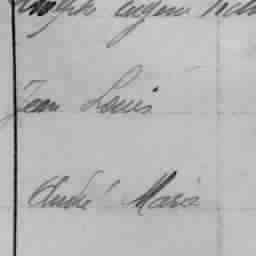 Joseph Eugène
Jean Louis
André Marie